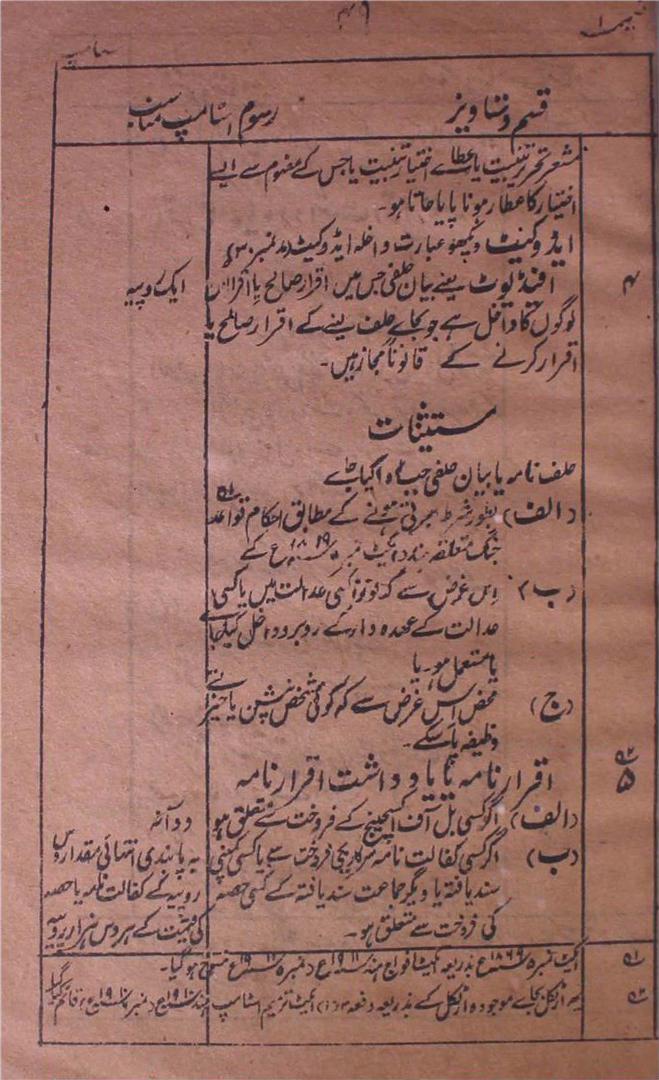 ۴۹
قسم دستاویز
رسوم اسٹامپ مناسب
مشعر تحریر تبنیت یا عطاے اختیار تبنیت یا جس کے مفہوم سے ایسے
اختیار کا عطار ہونا پایا جاتا ہو۔
ایڈوکیٹ دیکھو عبارت داخلہ ایڈوکیٹ (مد نمبر ۳۰)
۴
افیڈیوٹ یعنے بیان حلفی جس میں اقرار صالح یا اقرار ان
ایک روپیہ
لوگوں کا داخل ہے جو بجاے حلف لینے کے اقرار صالح یا
اقرار کرنے کے قانوناً مجاز ہیں۔
مستثنات
حلف نامہ یا بیان حلفی جبکہ لکھا گیا جاے
(الف) بطور شرط بھرتی ہونے کے مطابق احکام قواعد ۵۱
جنگ متعلقہ ہند (ایکٹ نمبر ۵ ۱۸۶۹ع کے
(ب) اس غرض سے کہ کسی عدالت میں یا کسی
عدالت کے عہدہ دار کے روبرو داخل کیا جاے
یا مستعمل ہو۔ یا
(ج) محض اس غرض سے کہ کوئی شخص پنشن یا خیراتی
وظیفہ پا سکے۔
۵۲
۵
اقرارنامہ یا یادداشت اقرارنامہ
(الف) اگر کسی بل آف ایکسچینج کے فروخت سے متعلق ہو
دو آنہ
(ب) اگر کسی کفالت نامہ سرکاری کی فروخت سے یا کسی کمپنی
بہ پابندی انتہائی مقدار دس
سند یافتہ یا دیگر جماعت سند یافتہ کے کسی حصہ
روپیہ کے کفالت نامہ یا حصہ
کی فروخت سے متعلق ہو۔
کی قیمت کے ہر دس ہزار روپیہ
۵۱
ایکٹ نمبر ۵ ۱۸۶۹ع بذریعہ ایکٹ افواج ہند ۱۹۱۱ع (نمبر ۸ ۱۹۱۱ع) منسوخ ہو گیا۔
۵۲
یہ آرٹکل بجاے موجودہ آرٹکل کے بذریعہ دفعہ ایکٹ ترمیم اسٹامپ ہند ۱۹۱۰ع (نمبر ۶ ۱۹۱۰ع) قائم کیا گیا